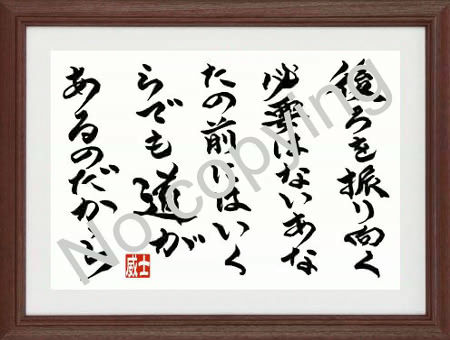 後ろを振り向く
必要はないあな
たの前にはいく
らでも道が
あるのだから
威士
No copying